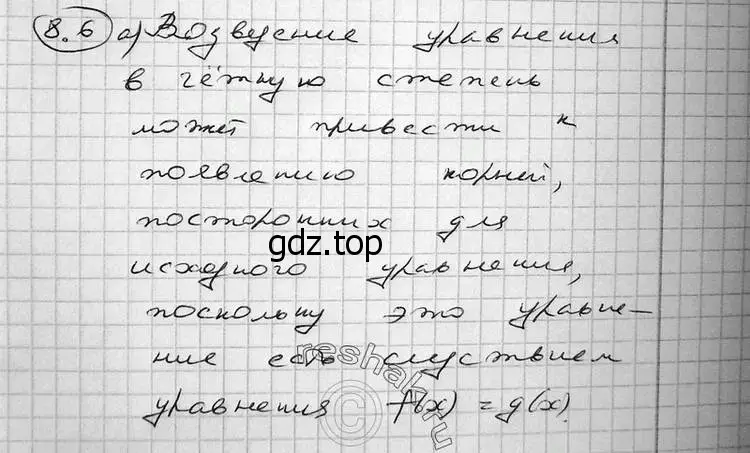 8.6 а) Возведение уравнения
в чётную степень
может привести к
появлению корней,
посторонних для
gdz.top
исходного уравнения,
поскольку это уравне-
ние есть следствием
уравнения f(x) = g(x).
reshak.ru